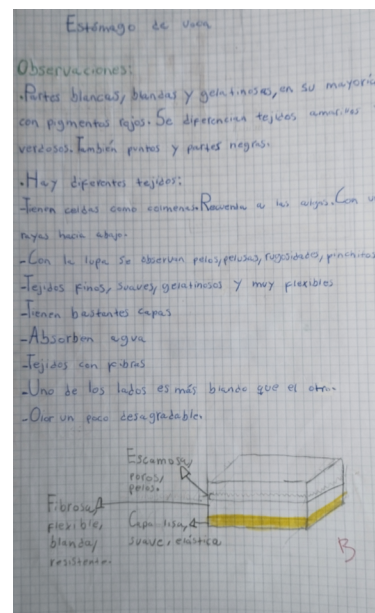 Estómago de vaca
Observaciones:
•Partes blancas, blandas y gelatinosas, en su mayoría
con pigmentos rojos. Se diferencian tejidos amarillos
verdosos. También puntos y partes negras.
•Hay diferentes tejidos:
-Tienen celdas como colmenas. Recuerda a las algas. Con
rayas hacia abajo.
-Con la lupa se observan pelos, pelusas, rugosidades, pinchitos
-Tejidos finos, suaves, gelatinosos y muy flexibles
-Tienen bastantes capas
-Absorben agua
-Tejidos con fibras
-Uno de los lados es más blando que el otro.
-Olor un poco desagradable.
Escamosa,
poros,
pelos.
Fibrosa,
flexible,
blanda,
resistente.
Capa lisa,
suave, elástica
B